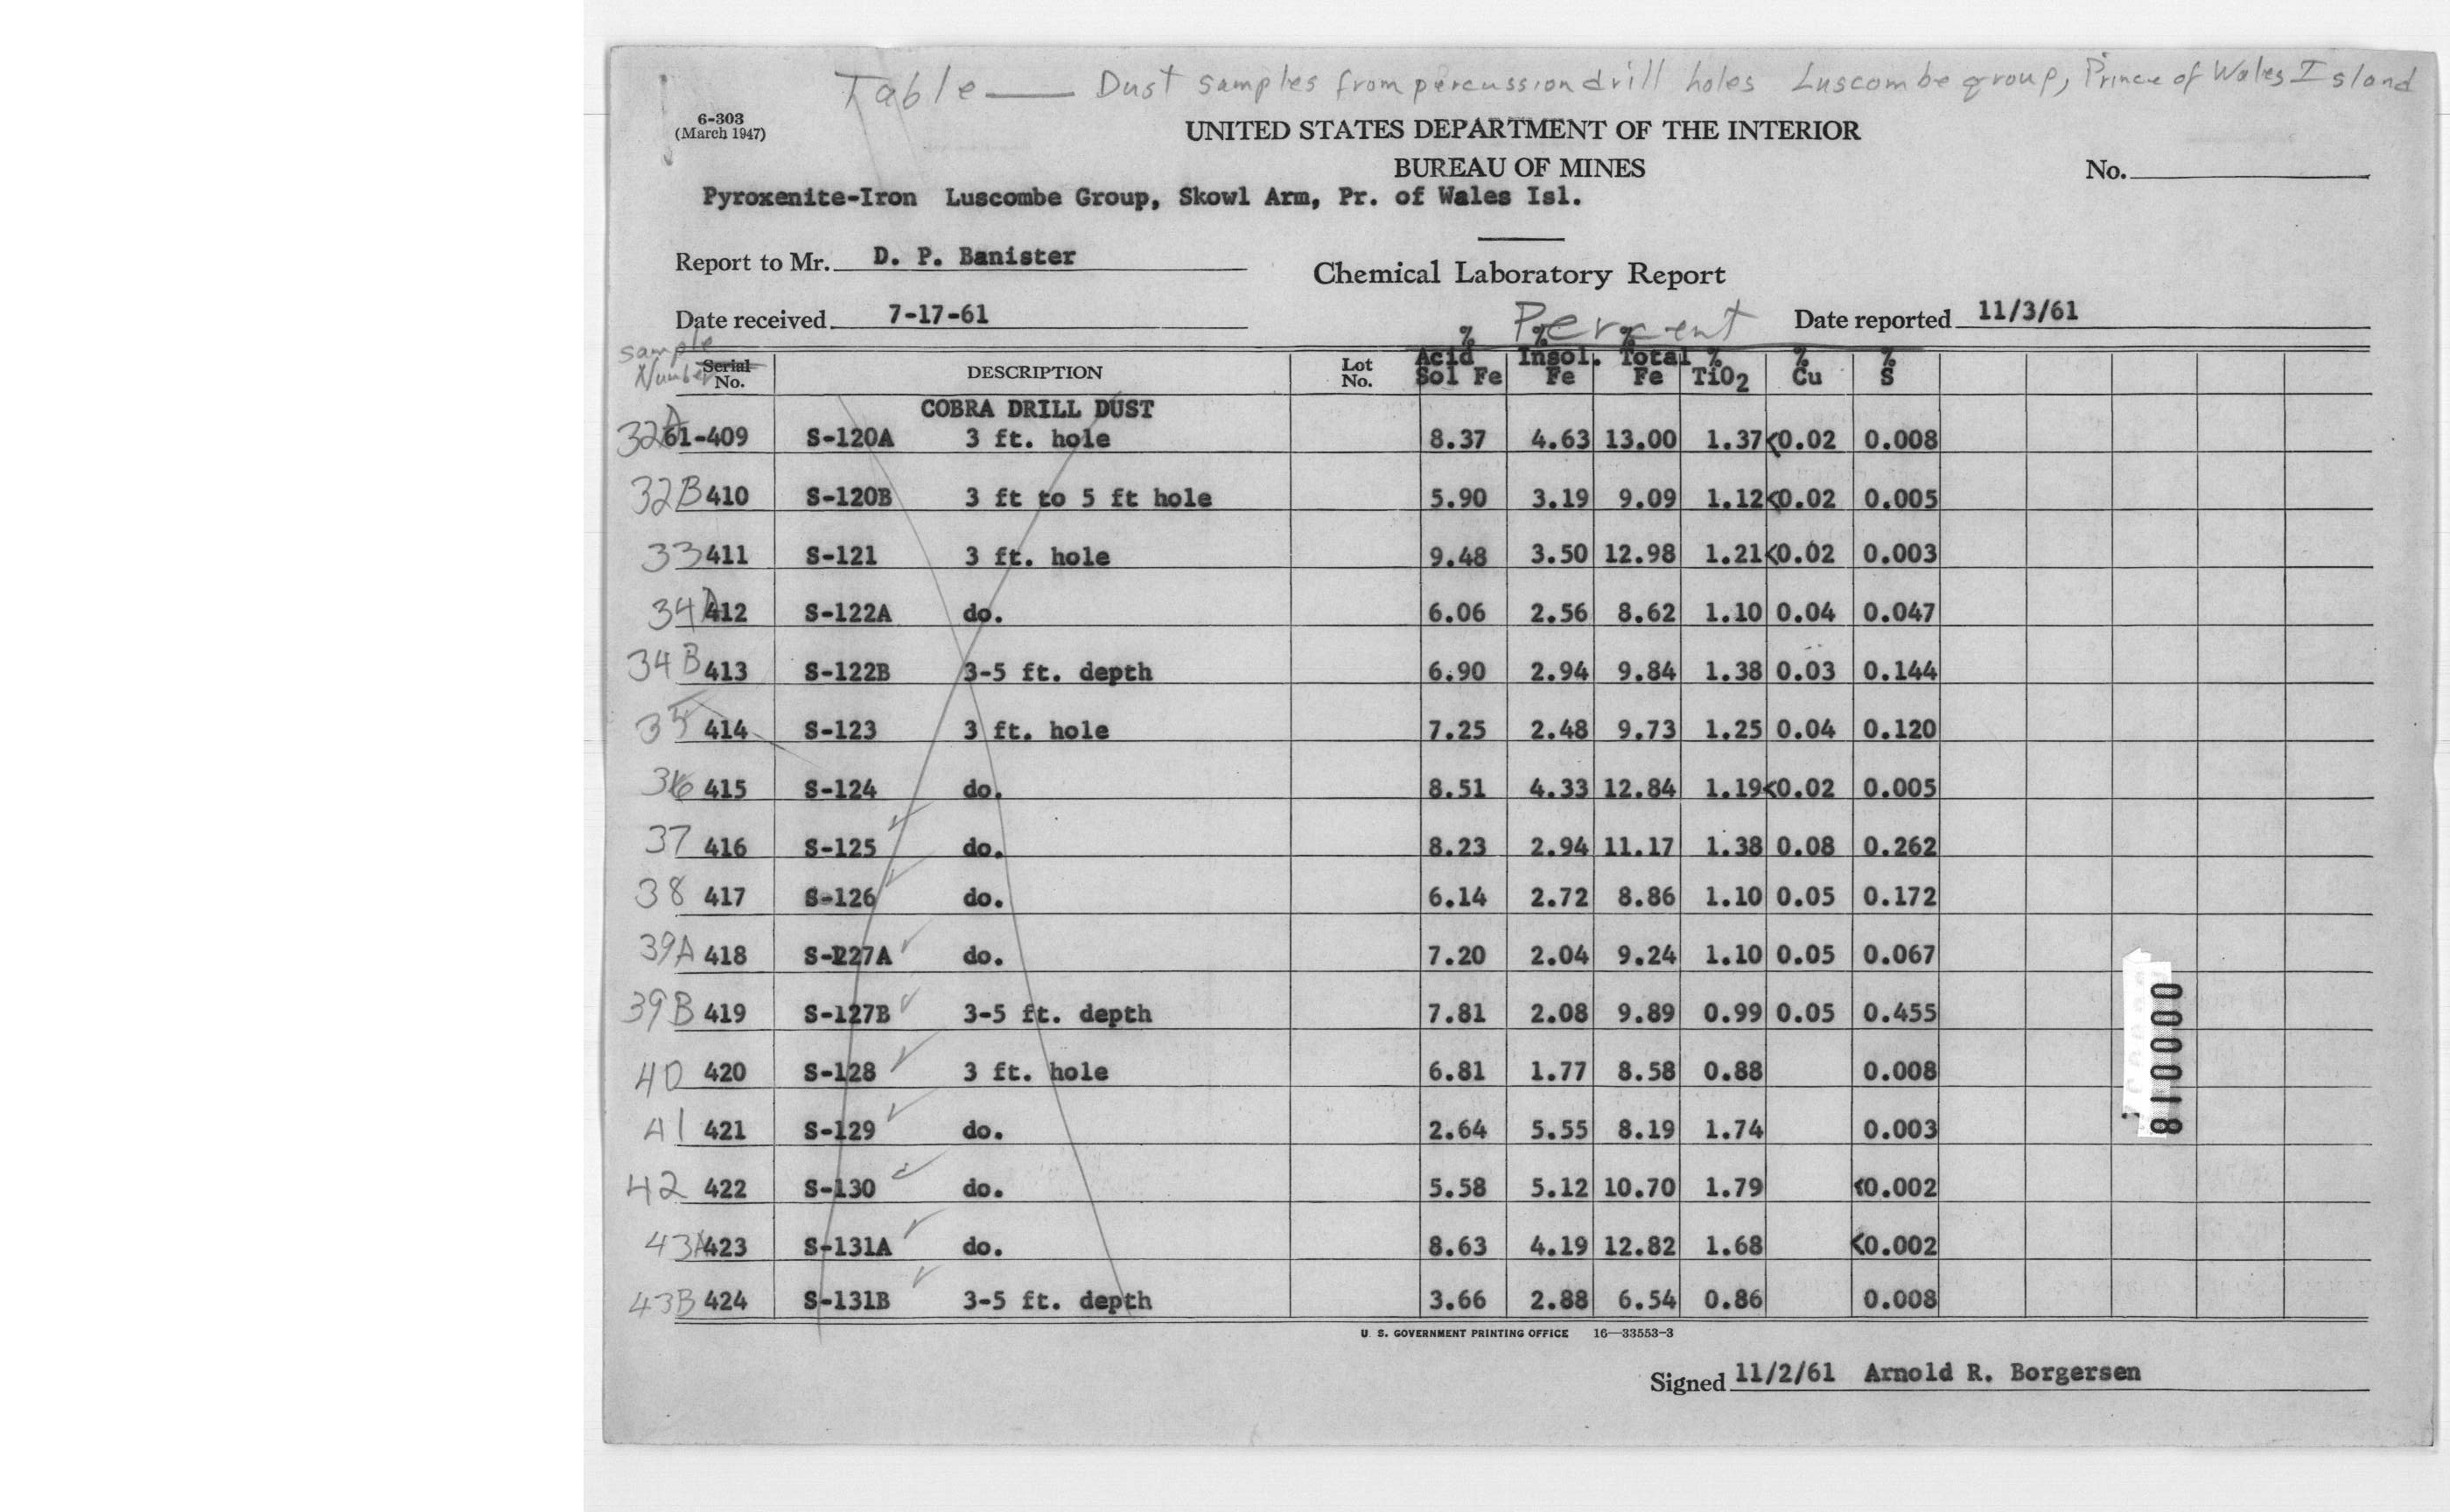 Table — Dust samples from percussion drill holes Luscombe group, Prince of Wales Island
6-303
(March 1947)
UNITED STATES DEPARTMENT OF THE INTERIOR
BUREAU OF MINES
No.
Pyroxenite-Iron Luscombe Group, Skowl Arm, Pr. of Wales Isl.
Report to Mr. D. P. Banister
Chemical Laboratory Report
Date received 7-17-61
Percent
Date reported 11/3/61
sample Number
Serial No. DESCRIPTION Lot No. % Acid Sol Fe % Insol. Fe % Total Fe % TiO2 % Cu % S
COBRA DRILL DUST
32A 61-409 S-120A 3 ft. hole 8.37 4.63 13.00 1.37 <0.02 0.008
32B 410 S-120B 3 ft to 5 ft hole 5.90 3.19 9.09 1.12 <0.02 0.005
33 411 S-121 3 ft. hole 9.48 3.50 12.98 1.21 <0.02 0.003
34A 412 S-122A do. 6.06 2.56 8.62 1.10 0.04 0.047
34B 413 S-122B 3-5 ft. depth 6.90 2.94 9.84 1.38 0.03 0.144
35 414 S-123 3 ft. hole 7.25 2.48 9.73 1.25 0.04 0.120
36 415 S-124 do. 8.51 4.33 12.84 1.19 <0.02 0.005
37 416 S-125 do. 8.23 2.94 11.17 1.38 0.08 0.262
38 417 S-126 do. 6.14 2.72 8.86 1.10 0.05 0.172
39A 418 S-127A do. 7.20 2.04 9.24 1.10 0.05 0.067
39B 419 S-127B 3-5 ft. depth 7.81 2.08 9.89 0.99 0.05 0.455
40 420 S-128 3 ft. hole 6.81 1.77 8.58 0.88 0.008
41 421 S-129 do. 2.64 5.55 8.19 1.74 0.003
42 422 S-130 do. 5.58 5.12 10.70 1.79 <0.002
43A 423 S-131A do. 8.63 4.19 12.82 1.68 <0.002
43B 424 S-131B 3-5 ft. depth 3.66 2.88 6.54 0.86 0.008
000018
U. S. GOVERNMENT PRINTING OFFICE 16—33553-3
Signed 11/2/61 Arnold R. Borgersen